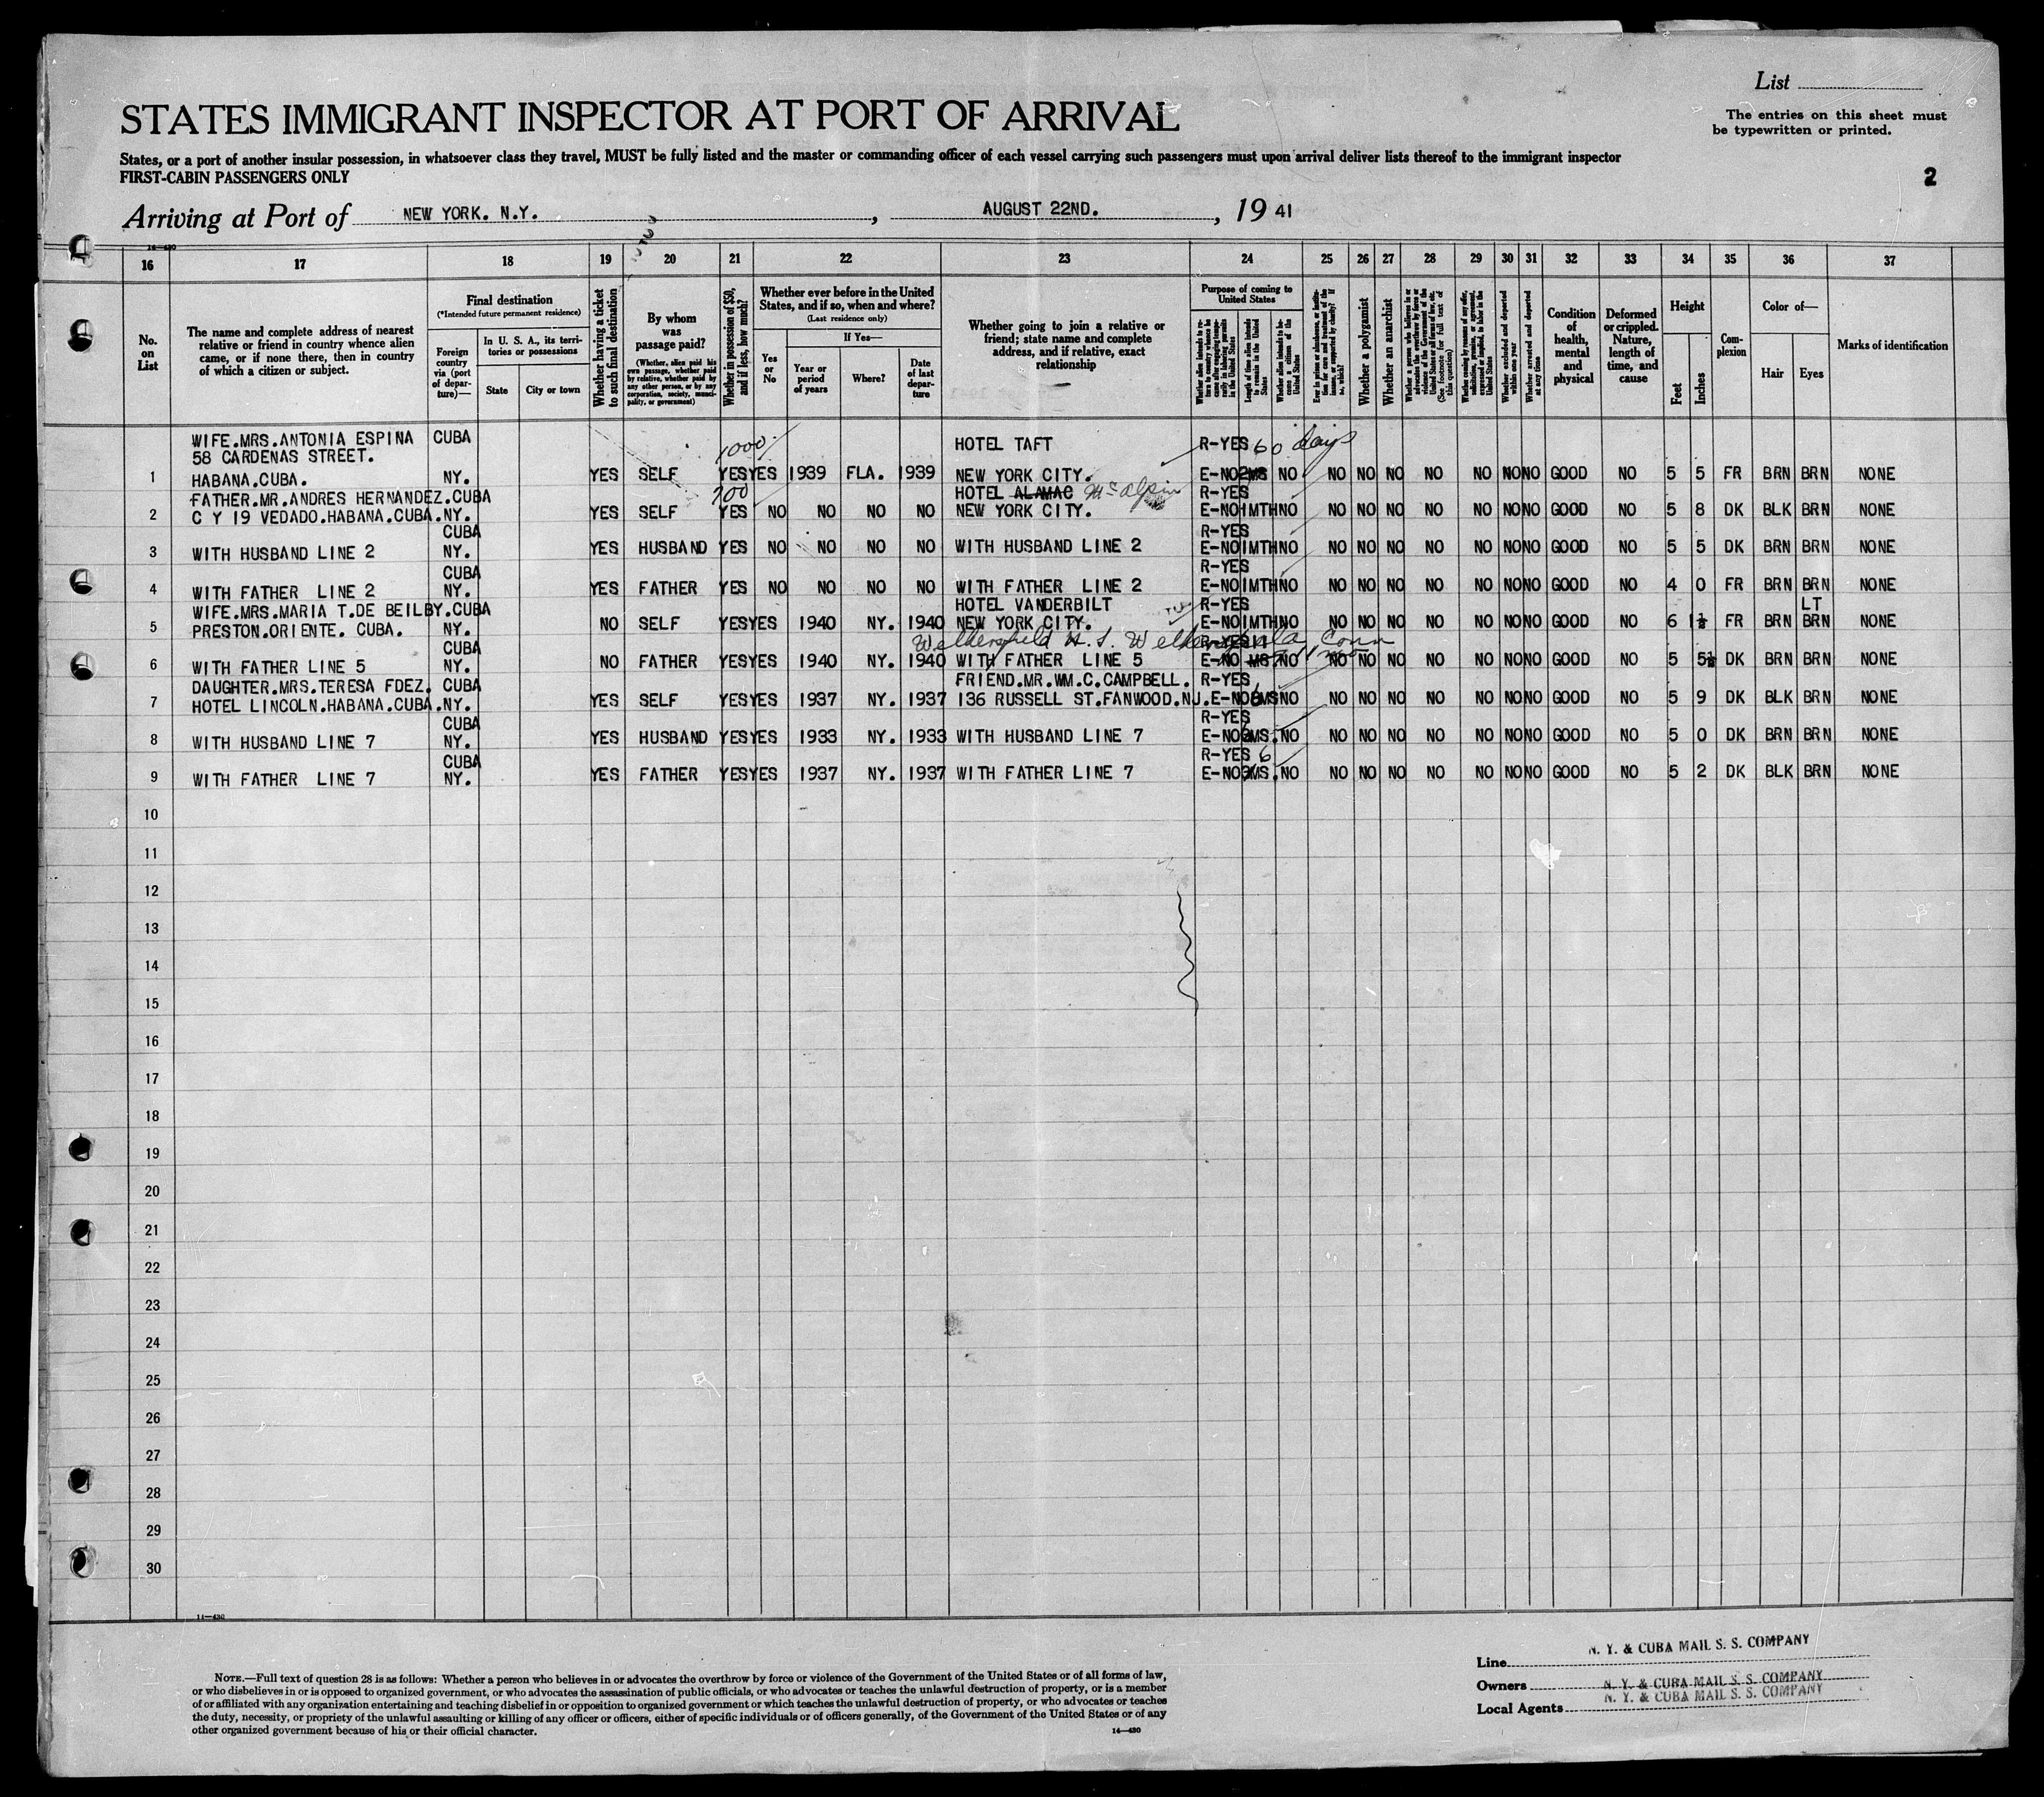 List
STATES IMMIGRANT INSPECTOR AT PORT OF ARRIVAL
The entries on this sheet must
be typewritten or printed.
States, or a port of another insular possession, in whatsoever class they travel, MUST be fully listed and the master or commanding officer of each vessel carrying such passengers must upon arrival deliver lists thereof to the immigrant inspector
FIRST-CABIN PASSENGERS ONLY
2
Arriving at Port of NEW YORK. N.Y. , AUGUST 22ND. , 19 41
14-430
16 17 18 19 20 21 22 23 24 25 26 27 28 29 30 31 32 33 34 35 36 37
No. on List
The name and complete address of nearest relative or friend in country whence alien came, or if none there, then in country of which a citizen or subject.
Final destination
(*Intended future permanent residence)
Foreign country via (port of departure)—
In U. S. A., its territories or possessions
State
City or town
Whether having a ticket to such final destination
By whom was passage paid?
(Whether alien paid his own passage, whether paid by relative, whether paid by any other person, or by any corporation, society, municipality, or government)
Whether in possession of $50, and if less, how much?
Whether ever before in the United States, and if so, when and where?
(Last residence only)
Yes or No
If Yes—
Year or period of years
Where?
Date of last departure
Whether going to join a relative or friend; state name and complete address, and if relative, exact relationship
Purpose of coming to United States
Length of time alien intends to remain in the United States
Whether alien intends to become a citizen of the United States
Whether a polygamist
Whether an anarchist
(See footnote for full text of this question)
Whether excluded and deported within one year
Whether arrested and deported at any time
Condition of health, mental and physical
Deformed or crippled. Nature, length of time, and cause
Height
Feet
Inches
Complexion
Color of—
Hair
Eyes
Marks of identification
WIFE.MRS.ANTONIA ESPINA CUBA 1000 HOTEL TAFT R-YES 60 days
58 CARDENAS STREET.
1 HABANA.CUBA. NY. YES SELF YES YES 1939 FLA. 1939 NEW YORK CITY. E-NO NO NO NO NO NO NO NO NO GOOD NO 5 5 FR BRN BRN NONE
FATHER.MR.ANDRES HERNANDEZ.CUBA 700 HOTEL ALAMAC McAlpin R-YES
2 C Y 19 VEDADO.HABANA.CUBA.NY. YES SELF YES NO NO NO NO NEW YORK CITY. E-NO 1MTH NO NO NO NO NO NO NO NO GOOD NO 5 8 DK BLK BRN NONE
CUBA R-YES
3 WITH HUSBAND LINE 2 NY. YES HUSBAND YES NO NO NO NO WITH HUSBAND LINE 2 E-NO 1MTH NO NO NO NO NO NO NO NO GOOD NO 5 5 DK BRN BRN NONE
CUBA R-YES
4 WITH FATHER LINE 2 NY. YES FATHER YES NO NO NO NO WITH FATHER LINE 2 E-NO 1MTH NO NO NO NO NO NO NO NO GOOD NO 4 0 FR BRN BRN NONE
WIFE.MRS.MARIA T.DE BEILBY.CUBA HOTEL VANDERBILT R-YES LT
5 PRESTON.ORIENTE. CUBA. NY. NO SELF YES YES 1940 NY. 1940 NEW YORK CITY. E-NO 1MTH NO NO NO NO NO NO NO NO GOOD NO 6 1½ FR BRN BRN NONE
CUBA Wethersfield H. S. Conn R-YES
6 WITH FATHER LINE 5 NY. NO FATHER YES YES 1940 NY. 1940 WITH FATHER LINE 5 E-NO MS NO NO NO NO NO NO NO NO GOOD NO 5 5½ DK BRN BRN NONE
DAUGHTER.MRS.TERESA FDEZ. CUBA FRIEND.MR.WM.C.CAMPBELL. R-YES
7 HOTEL LINCOLN.HABANA.CUBA.NY. YES SELF YES YES 1937 NY. 1937 136 RUSSELL ST.FANWOOD.NJ. E-NO 6MS NO NO NO NO NO NO NO NO GOOD NO 5 9 DK BLK BRN NONE
CUBA R-YES
8 WITH HUSBAND LINE 7 NY. YES HUSBAND YES YES 1933 NY. 1933 WITH HUSBAND LINE 7 E-NO MS. NO NO NO NO NO NO NO NO GOOD NO 5 0 DK BRN BRN NONE
CUBA R-YES 6
9 WITH FATHER LINE 7 NY. YES FATHER YES YES 1937 NY. 1937 WITH FATHER LINE 7 E-NO 3MS. NO NO NO NO NO NO NO NO GOOD NO 5 2 DK BLK BRN NONE
10
11
12
13
14
15
16
17
18
19
20
21
22
23
24
25
26
27
28
29
30
14-430
NOTE.—Full text of question 28 is as follows: Whether a person who believes in or advocates the overthrow by force or violence of the Government of the United States or of all forms of law,
or who disbelieves in or is opposed to organized government, or who advocates the assassination of public officials, or who advocates or teaches the unlawful destruction of property, or is a member
of or affiliated with any organization entertaining and teaching disbelief in or opposition to organized government or which teaches the unlawful destruction of property, or who advocates or teaches
the duty, necessity, or propriety of the unlawful assaulting or killing of any officer or officers, either of specific individuals or of officers generally, of the Government of the United States or of any
other organized government because of his or their official character.
14-430
Line N. Y. & CUBA MAIL S. S. COMPANY
Owners N. Y. & CUBA MAIL S. S. COMPANY
Local Agents N. Y. & CUBA MAIL S. S. COMPANY